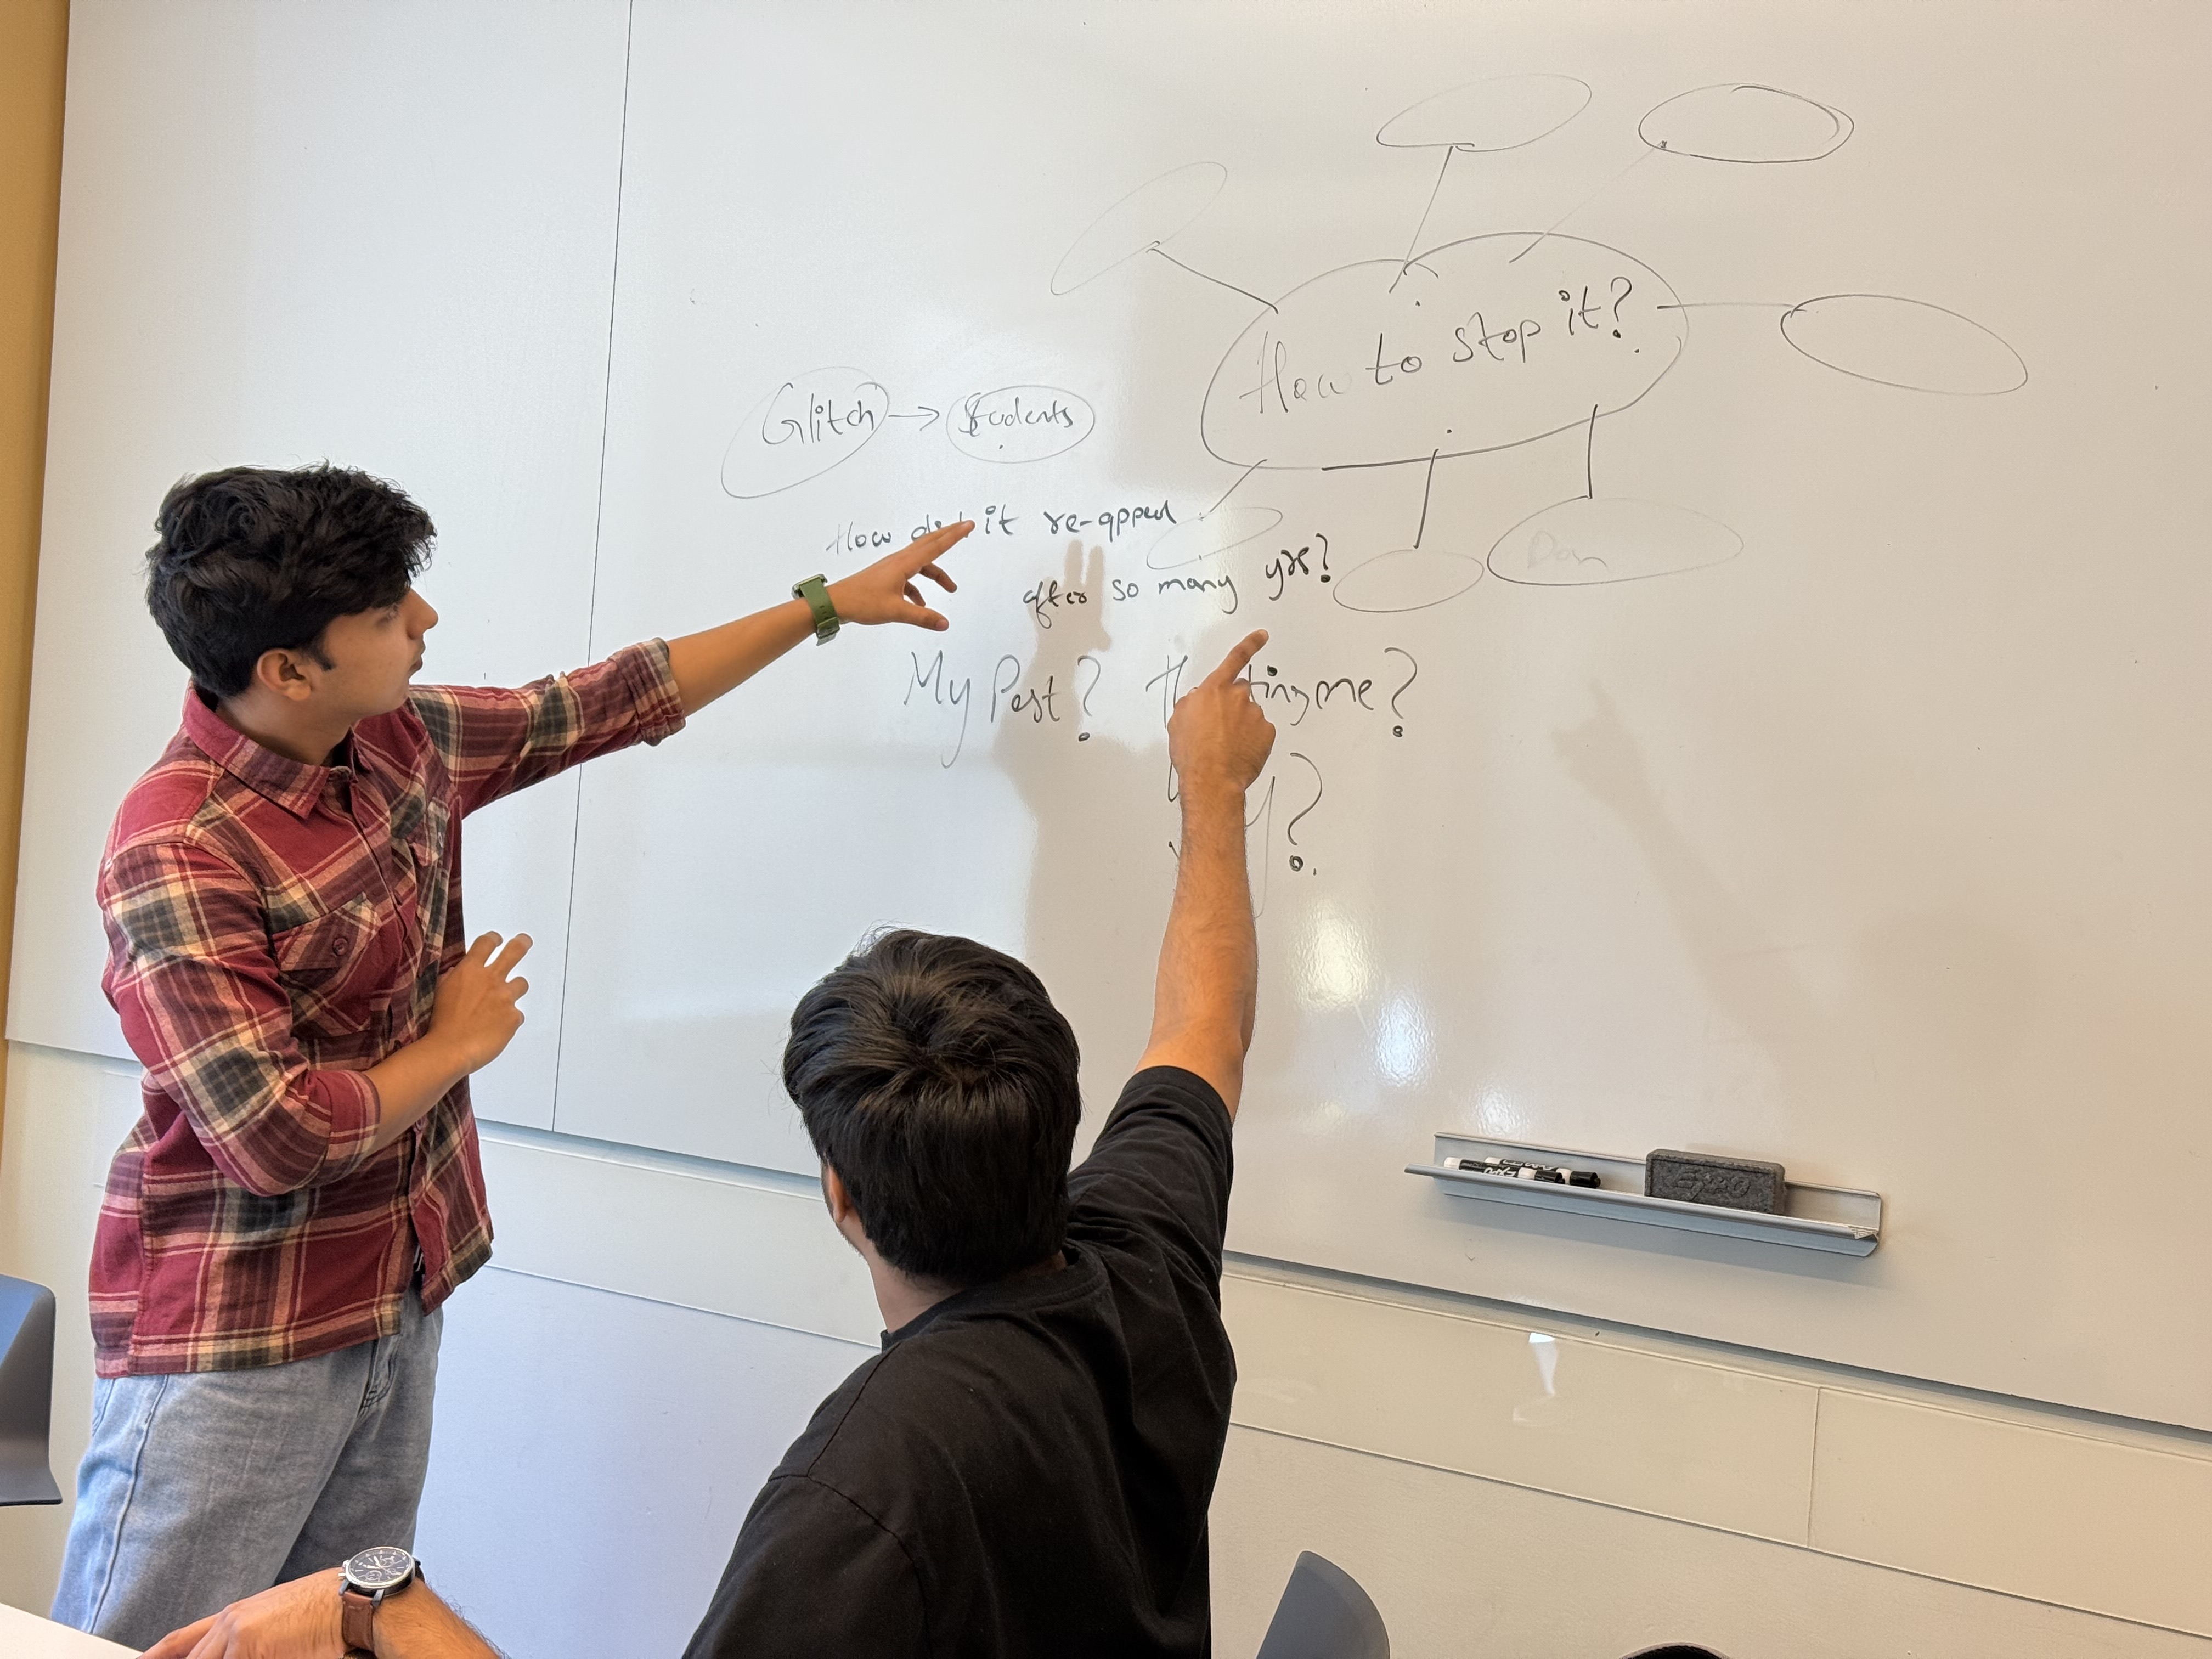 How to stop it?
Glitch → Students
How did it re-appear
after so many yrs?
My Past? ting me?
?
Expo